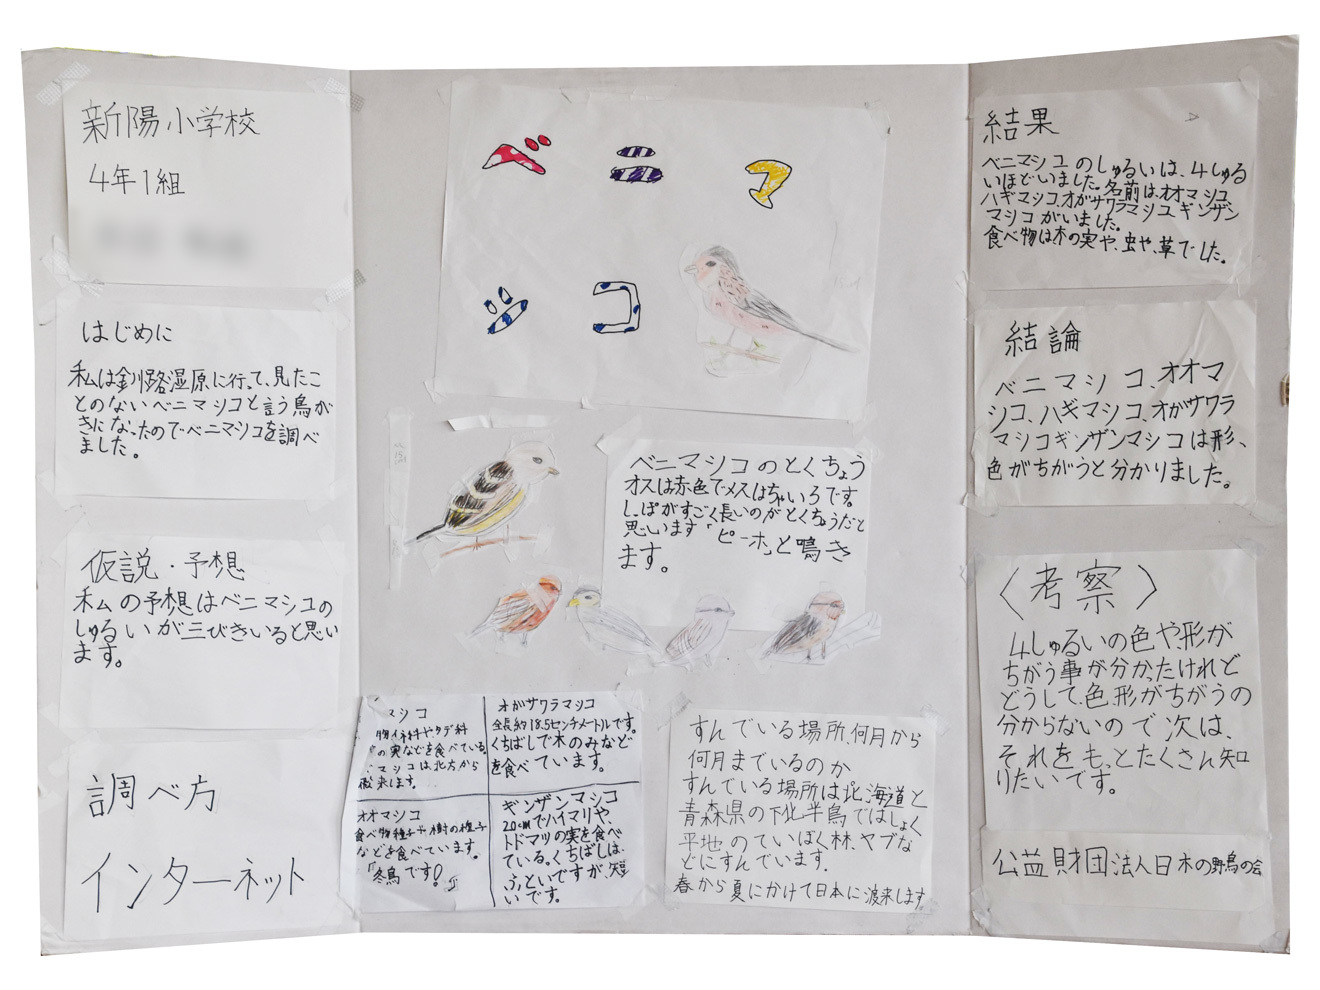 新陽小学校
4年1組
はじめに
私は釧路湿原に行って、見たこ
とのないベニマシコと言う鳥が
きになったのでベニマシコを調べ
ました。
仮説・予想
私の予想はベニマシコの
しゅるいが三びきいると思い
ます。
調べ方
インターネット
ベニマ
シコ
ベニマシコのとくちょう
オスは赤色でメスはちゃいろです。
しっぽがすごく長いのがとくちょうだと
思います「ピーホ」と鳴き
ます。
マシコ
物イネ科やタデ科
の実などを食べている
マシコは北方から
来します。
オガサワラマシコ
全長約18.5センチメートルです。
くちばしで木のみなど
を食べています。
オオマシコ
食べ物種子や樹の種子
などを食べています。
「冬鳥です!」
ギンザンマシコ
20cmでハイマツや、
トドマツの実を食べ
ている。くちばしは、
ふといですが、短
いです。
すんでいる場所、何月から
何月までいるのか
すんでいる場所は北海道と
青森県の下北半島ではしょく
平地のていぼく林、ヤブな
どにすんでいます。
春から夏にかけて日本に渡来します。
結果
ベニマシコのしゅるいは、4しゅる
いほどいました。名前は、オオマシコ
ハギマシコ、オガサワラマシコ、ギンザン
マシコがいました。
食べ物は木の実や、虫や、草でした。
結論
ベニマシコ、オオマ
シコ、ハギマシコ、オガサワラ
マシコギンザンマシコは形、
色がちがうと分かりました。
〈考察〉
4しゅるいの色や、形が
ちがう事が分かったけれど
どうして色、形がちがうの
分からないので次は、
それをもっとたくさん知
りたいです。
公益財団法人日本の野鳥の会